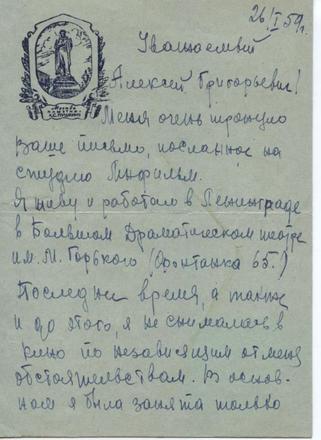 26/I 59г.
Уважаемый
Алексей Григорьевич!
Меня очень тронуло
Ваше письмо, посланное на
студию Ленфильм.
Я живу и работаю в Ленинграде
в Большом Драматическом театре
им. М. Горького (Фонтанка 65.)
Последнее время, а также
и до этого, я не снималась в
кино по независящим от меня
обстоятельствам. В основ-
ном я была занята только